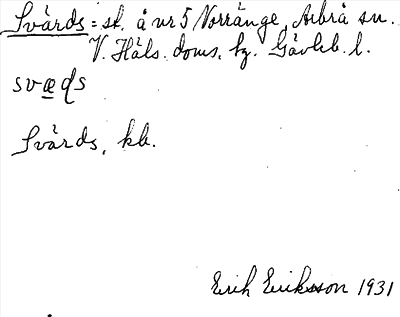 Svärds = st. å nr 5 Norränge, Arbrå sn.
V. Häls. doms. hg. Gävleb. l.
svæds
Svärds, kb.
Erik Eriksson 1931